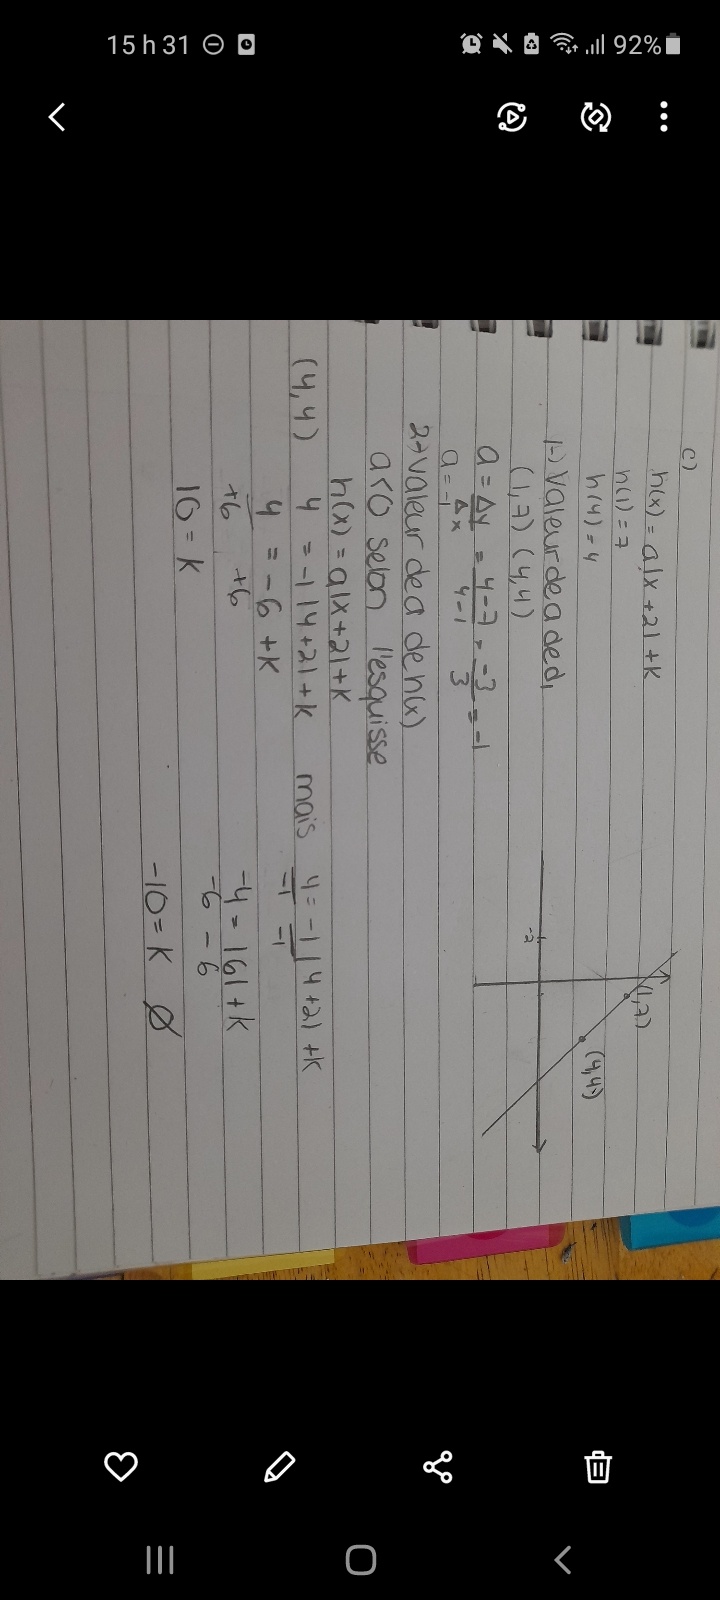 15 h 31
92%
c)
h(x) = a|x+2|+k
h(1) = 7
h(4) = 4
1-) Valeur de a de d₁
(1,7) (4,4)
a = Δy/Δx = 4-7/4-1 = -3/3 = -1
a = -1
2-) Valeur de a de h(x)
a<0 selon l'esquisse
h(x) = a|x+2|+k
(4,4) 4 = -1|4+2|+k mais 4 = -1|4+2|+k
-1 -1
4 = -6 +k
-4 = |6|+k
+6 +6
-6 -6
10 = k
-10 = k Ø
-2
(1,7)
(4,4)